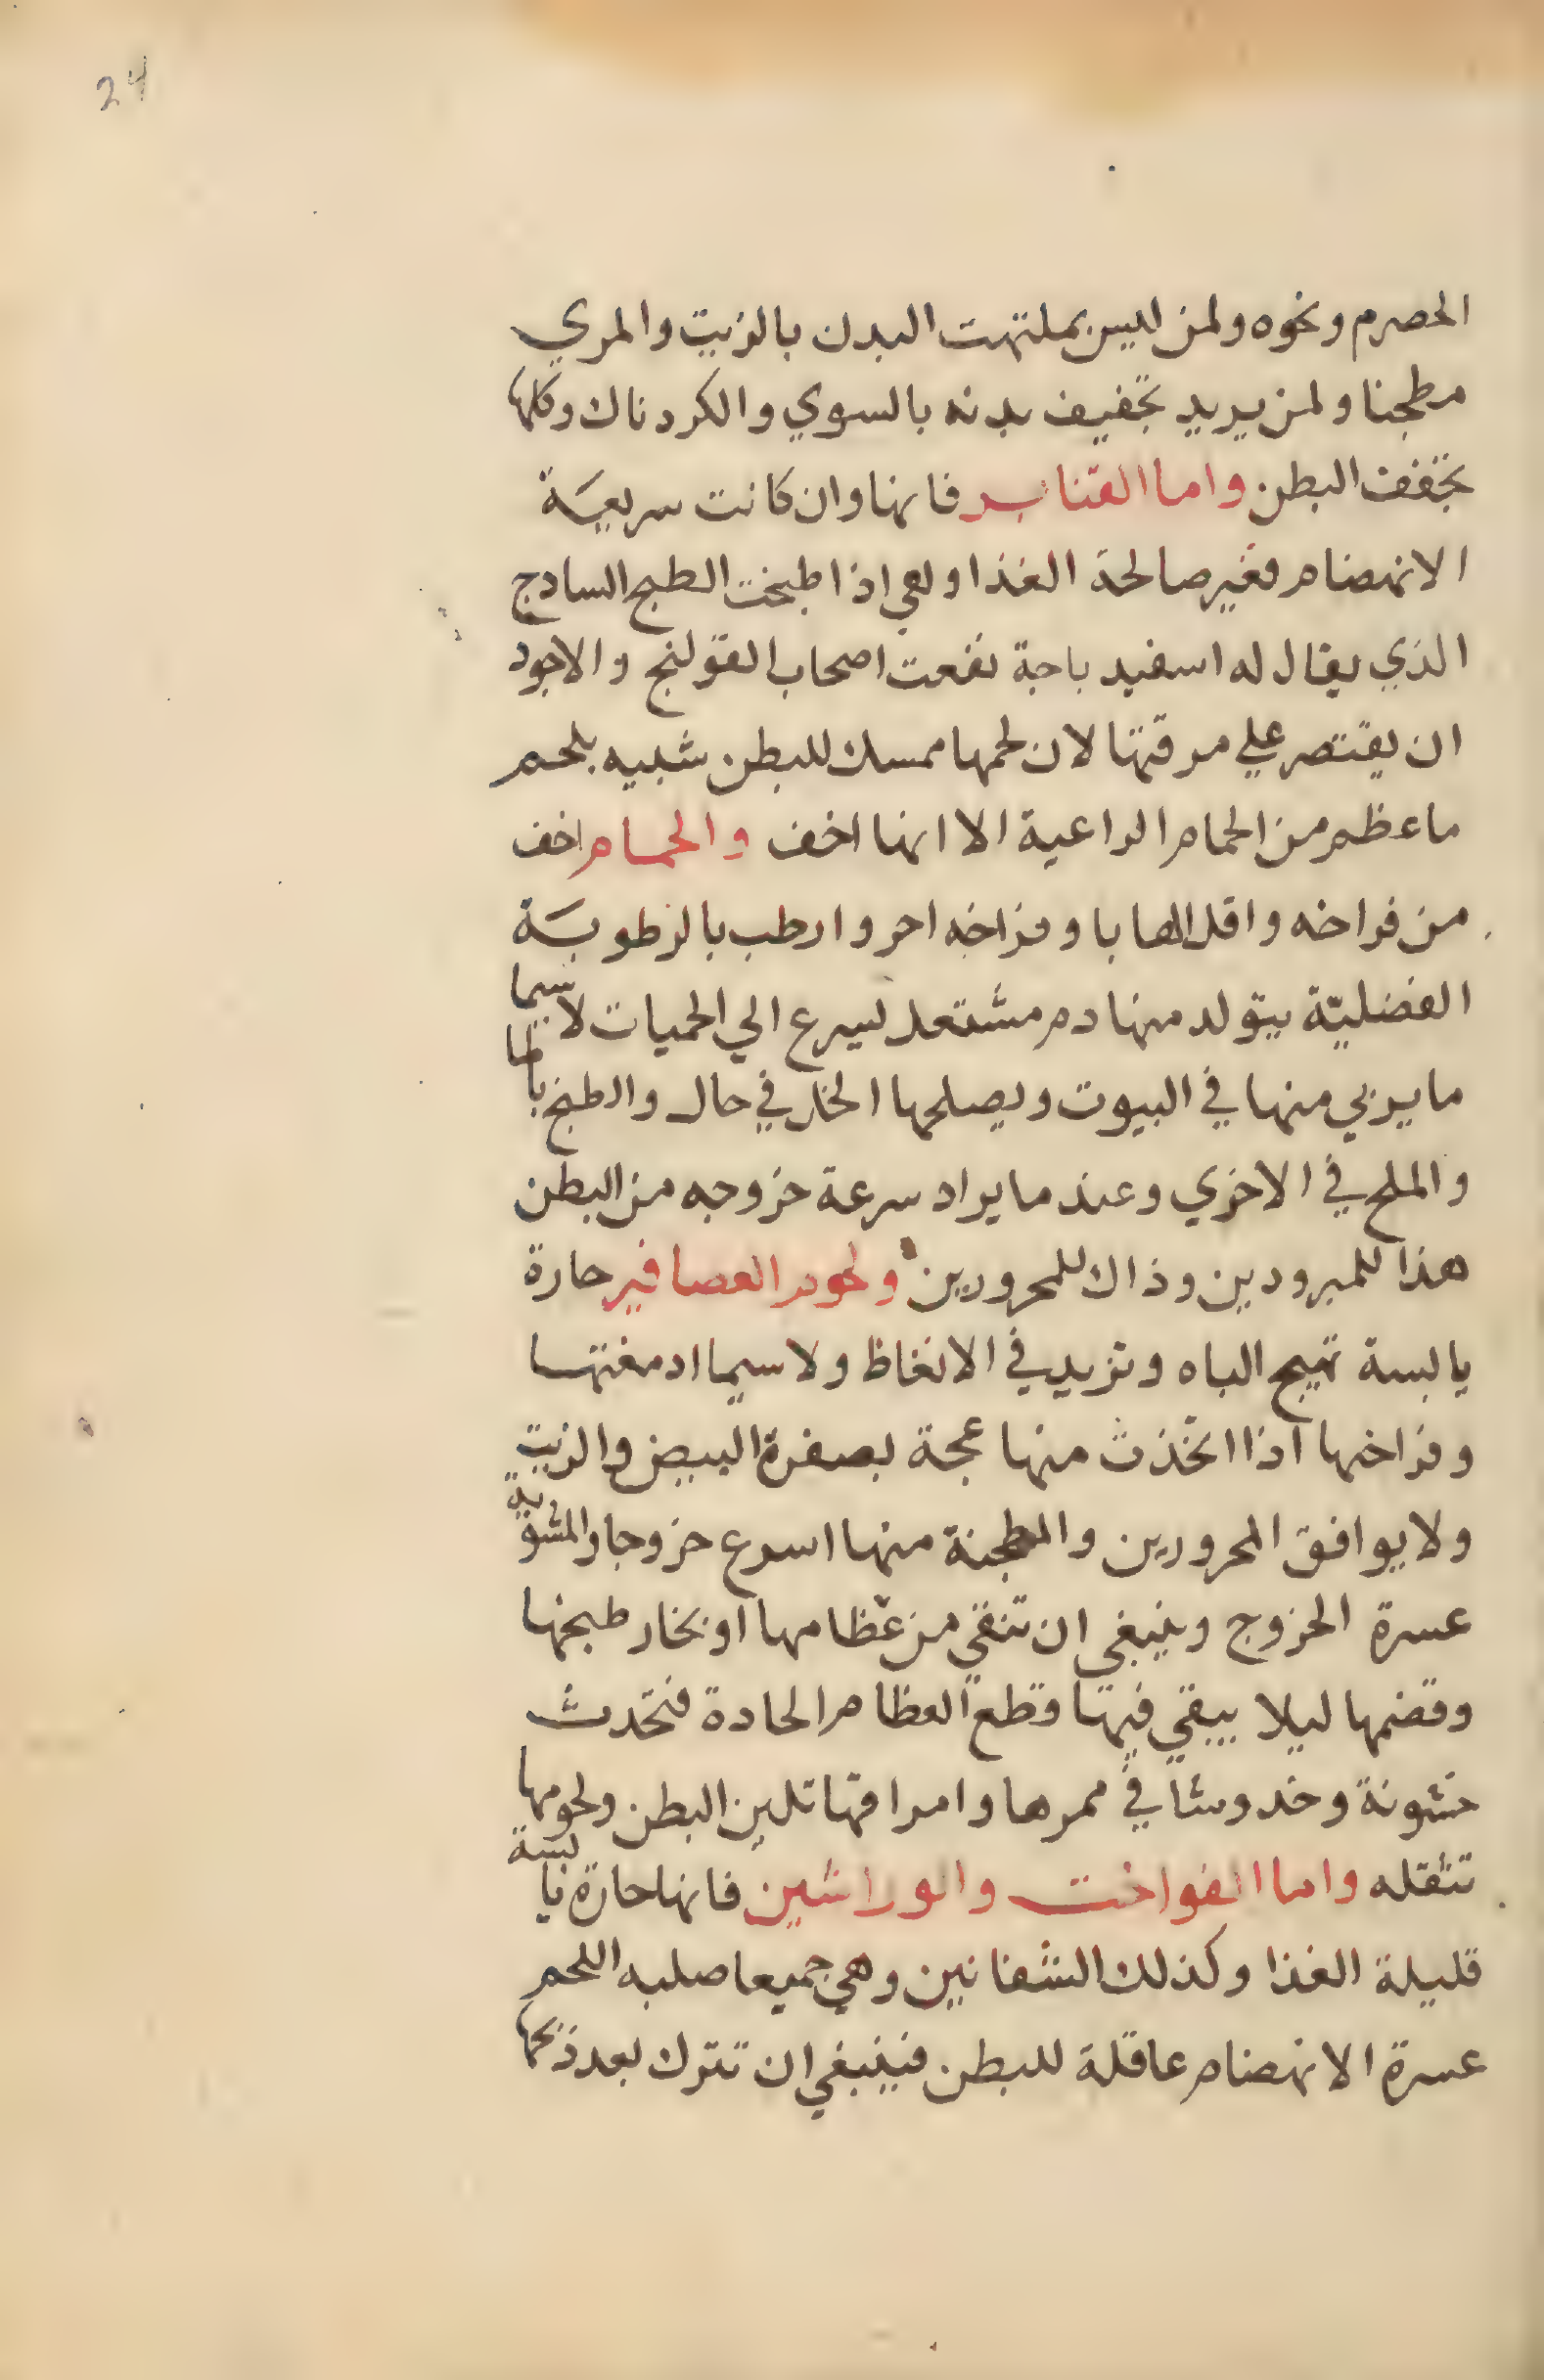 24
الحصرم ونحوه ولمن ليس بملتهب البدن بالزيت والمري
مطجنا ولمن يريد تجفيف بدنه بالسوي والكردناك وكلها
تجفف البطن واما القنابر فانها وان كانت سريعة
الانهضام فغير صالحة الغذا وهي اذا طبخت الطبخ السادج
الذي يقال له اسفيد باجة نفعت اصحاب القولنج والاجود
ان يقتصر علي مرقتها لان لحمها ممسك للبطن شبيه بلحم
ما عظم من الحمام الراعية الا انها اخف والحمام اخف
من فراخه واقل الهابا وفراخه احر وارطب بالرطوبة
الفضليّة يتولد منها دم مشتعل يسرع الي الحميات لاسيما
ما يربي منها في البيوت ويصلحها الخل في حال والطبخ بالما
والملح في الاخري وعند ما يراد سرعة خروجه من البطن
هذا للمبرودين وذاك للمحرورين ولحوم العصافير حارة
يابسة تهيج الباه وتزيد في الانغاظ ولاسيما ادمغتها
وفراخها اذا اتخذت منها عجة بصفرة البيض والزيت
ولا يوافق المحرورين والمطجنة منها اسرع خروجا والمشوية
عسرة الخروج وينبغي ان تنقي من عظامها او بخار طبخها
وقضمها ليلا يبقي فيها قطع العظام الحادة فتحدث
خشونة وخدوشا في ممرها وامراقها تلين البطن ولحومها
تثقله واما الفواخت والوراشين فانها حارة يابسة
قليلة الغذا وكذلك الشفانين وهي جميعا صلبه اللحم
عسرة الانهضام عاقلة للبطن فينبغي ان تترك بعد ذبحها